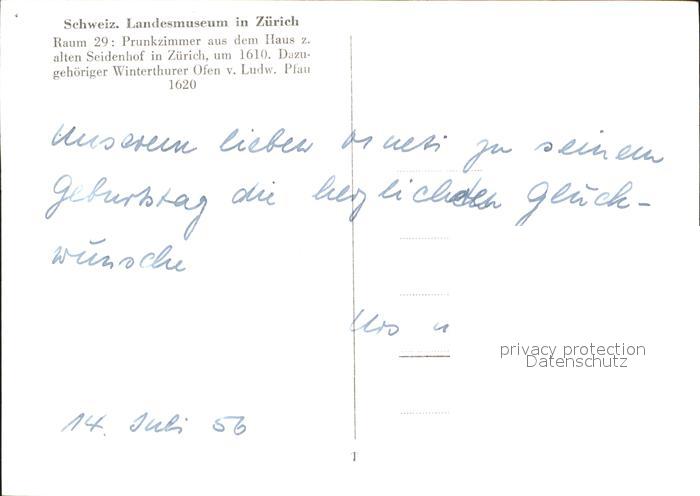 Schweiz. Landesmuseum in Zürich
Raum 29: Prunkzimmer aus dem Haus z.
alten Seidenhof in Zürich, um 1610. Dazu-
gehöriger Winterthurer Ofen v. Ludw. Pfau
1620
Unserem lieben zu seinem
Geburtstag die herzlichsten Glück-
wünsche
Urs u
privacy protection
Datenschutz
14. Juli 56
1